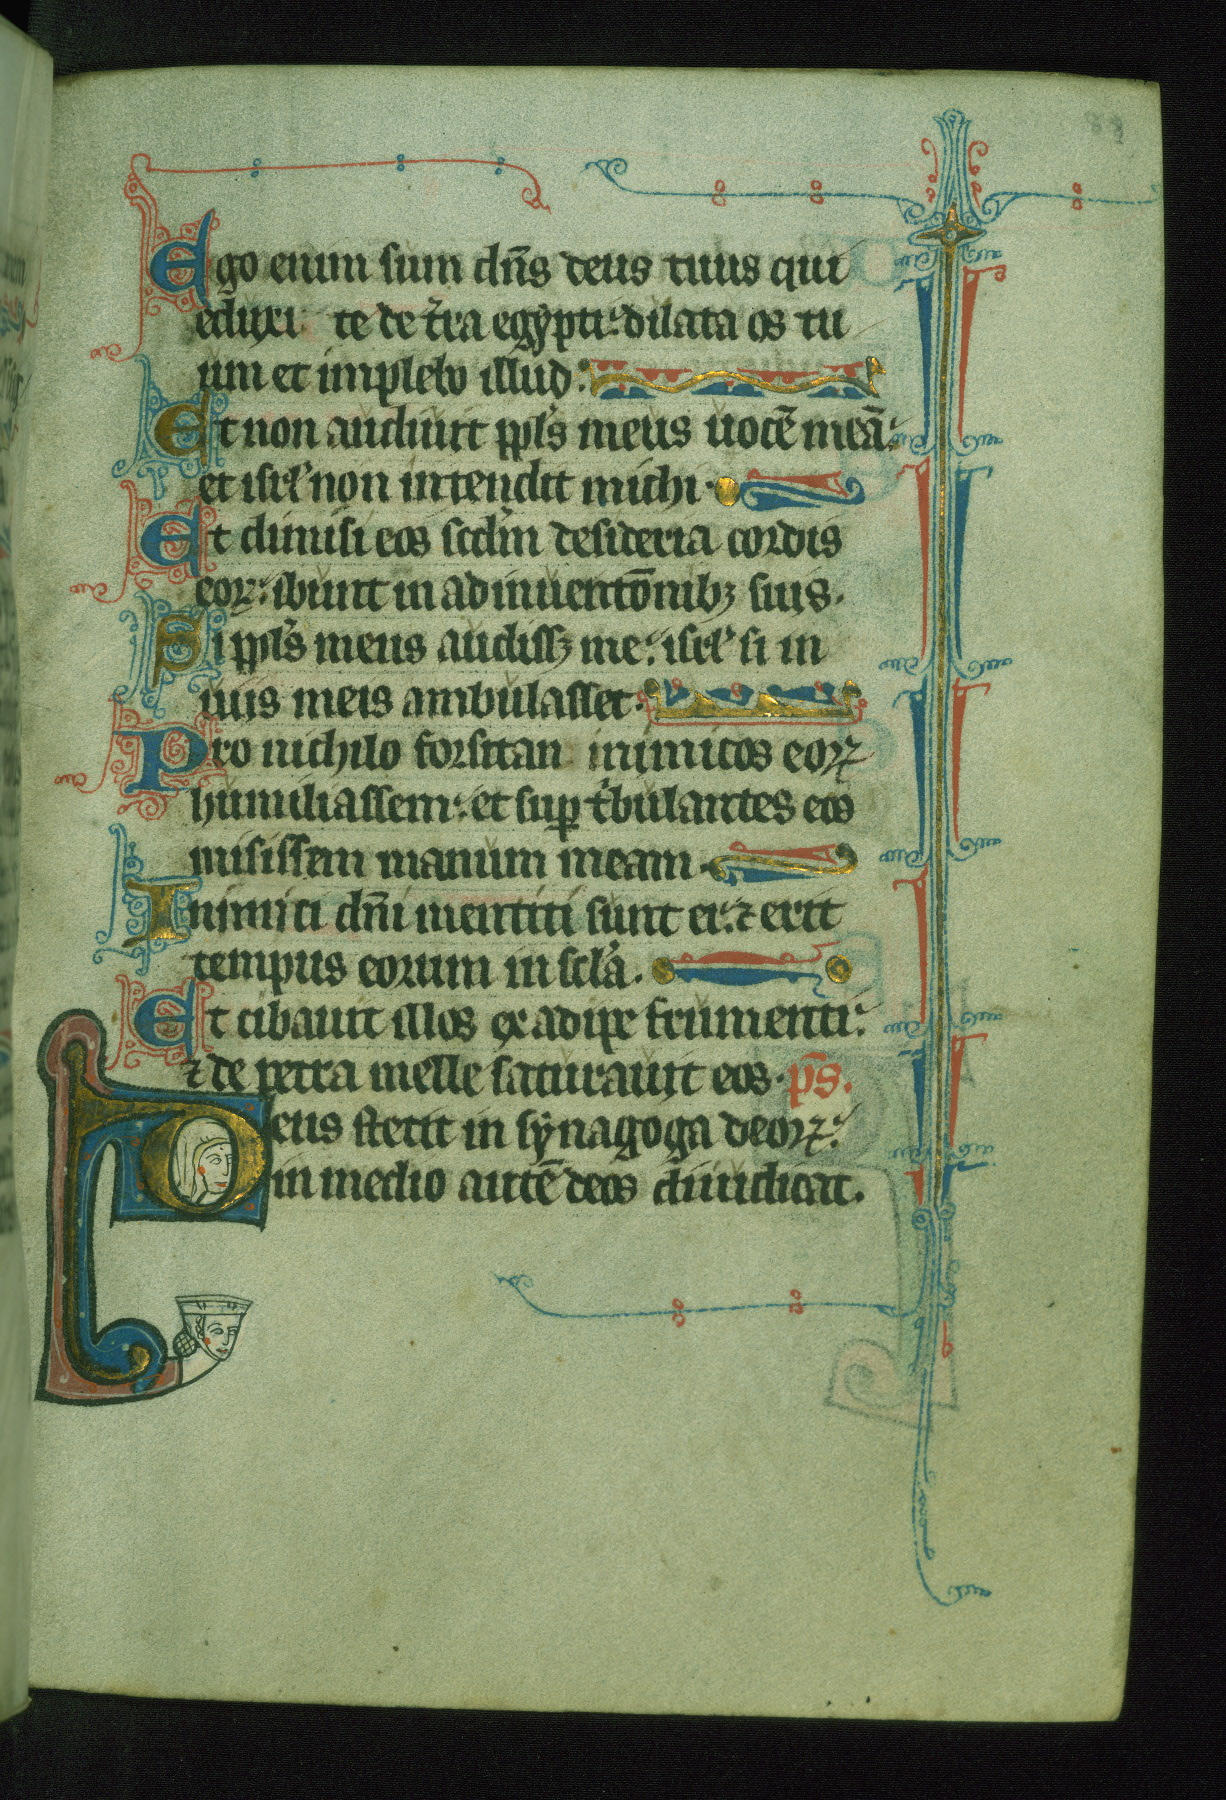 Ego enim sum dn̄s deus tuus qui
eduxi te de t̄ra egypti: dilata os tu
um et implebo illud:
Et non audiuit ppl̄s meus uocē meā:
et isrl̄ non intendit michi.
Et dimisi eos scd̄m desideria cordis
eoꝝ: ibunt in adinuentōnibꝫ suis.
Si ppl̄s meus audissꝫ me: isrl̄ si in
uiis meis ambulasset.
Pro nichilo forsitan inimicos eoꝝ
humiliassem: et suꝑ t̄bulantes eos
misissem manum meam.
Inimici dn̄i mentiti sunt ei: ⁊ erit
tempus eorum in scl̄a.
Et cibauit illos ex adipe frumenti:
⁊ de petra melle saturauit eos. p̄s.
Deus stetit in synagoga deoꝝ:
in medio autē deos diiudicat.